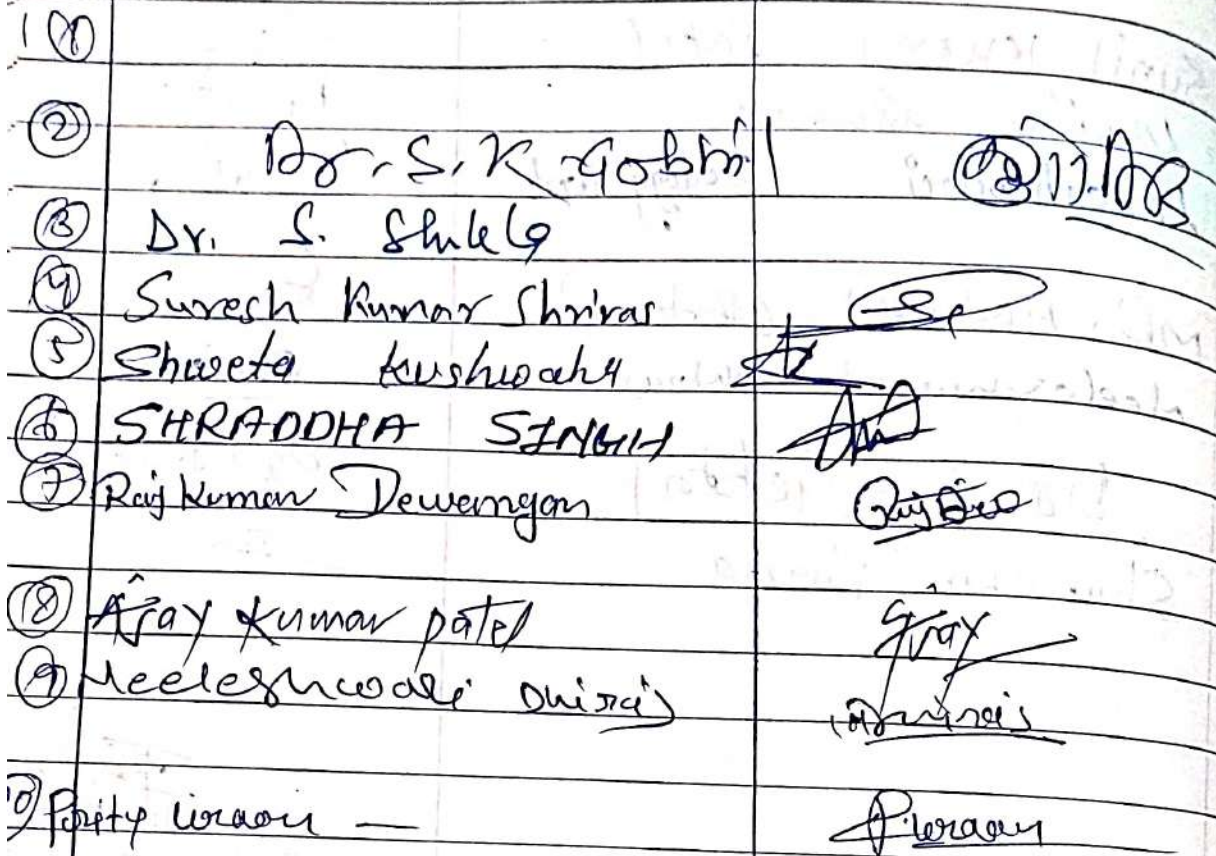 1
② Dr. S. K. Gobhil
③ Dr. S. Shukla
④ Suresh Kumar Shrivas
⑤ Shweta Kushwaha
⑥ SHRADDHA SINGH
⑦ Raj Kumar Dewangan
⑧ Ajay Kumar patel Ajay
⑨ Neeleshwari Dhiraj Dhiraj
10 Priety Uraon — P.Uraon